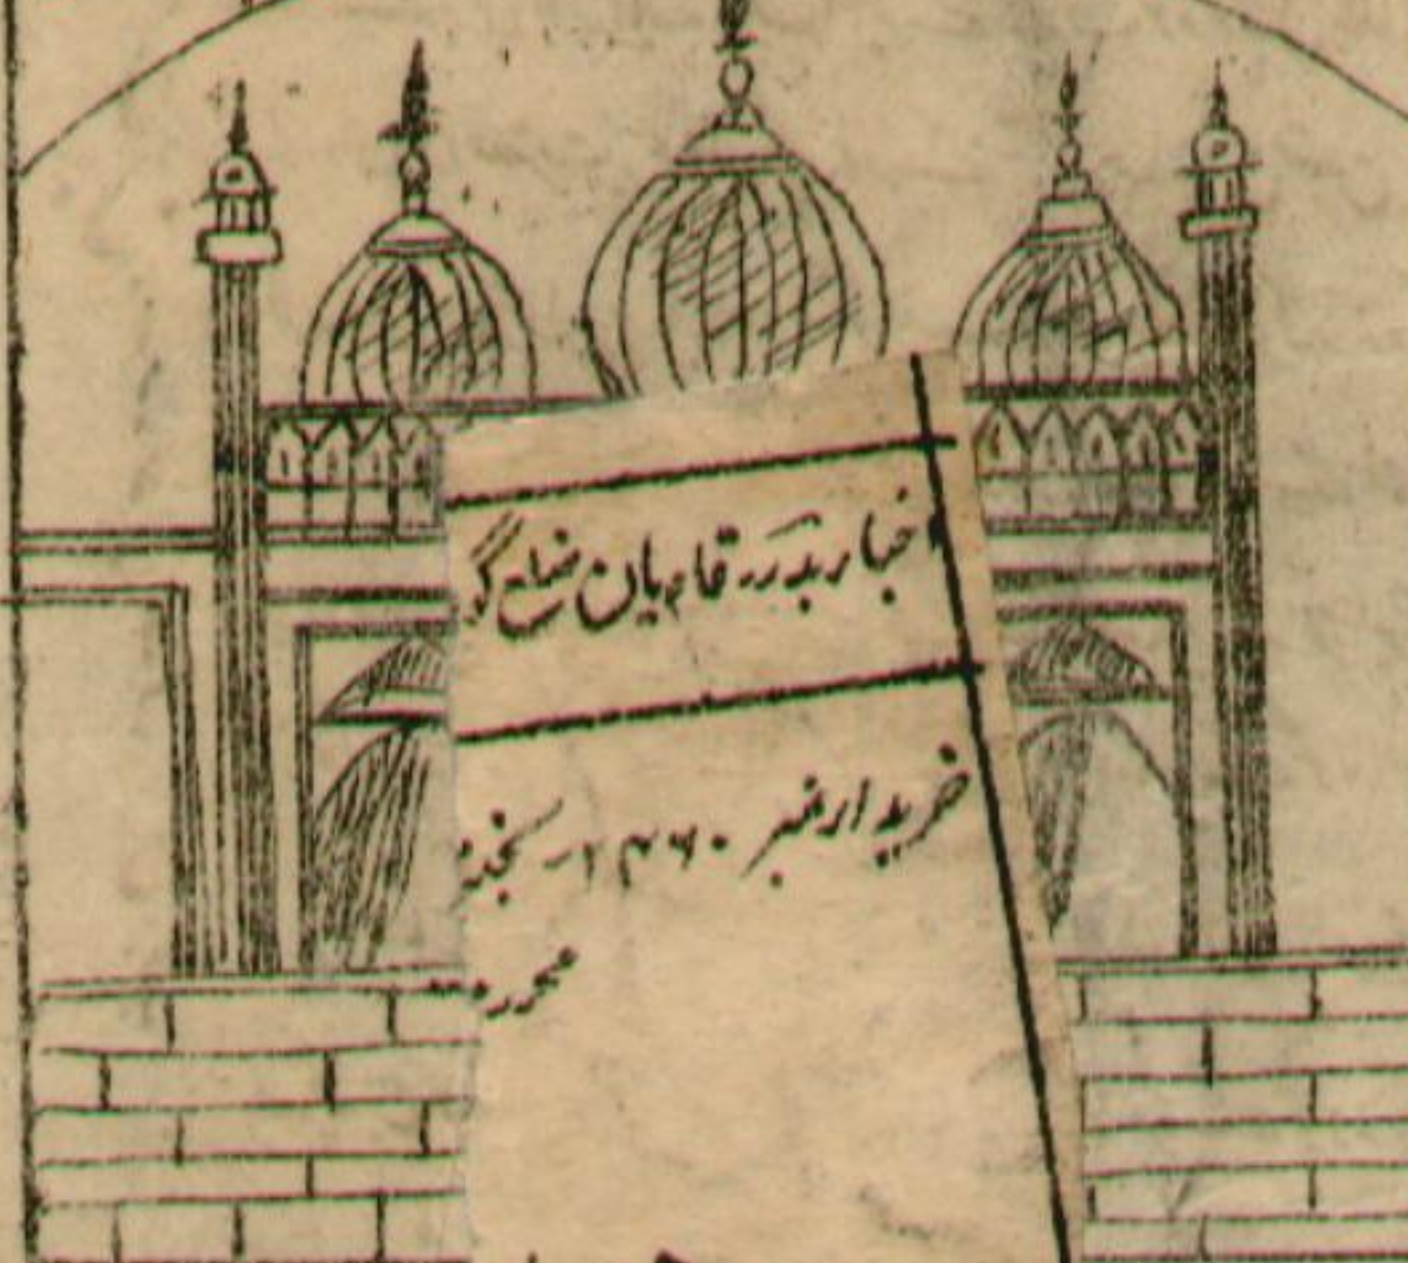 اخبار بدر قادیان ضلع گو
خریدار نمبر ۱۴۶۰ - بخدمت